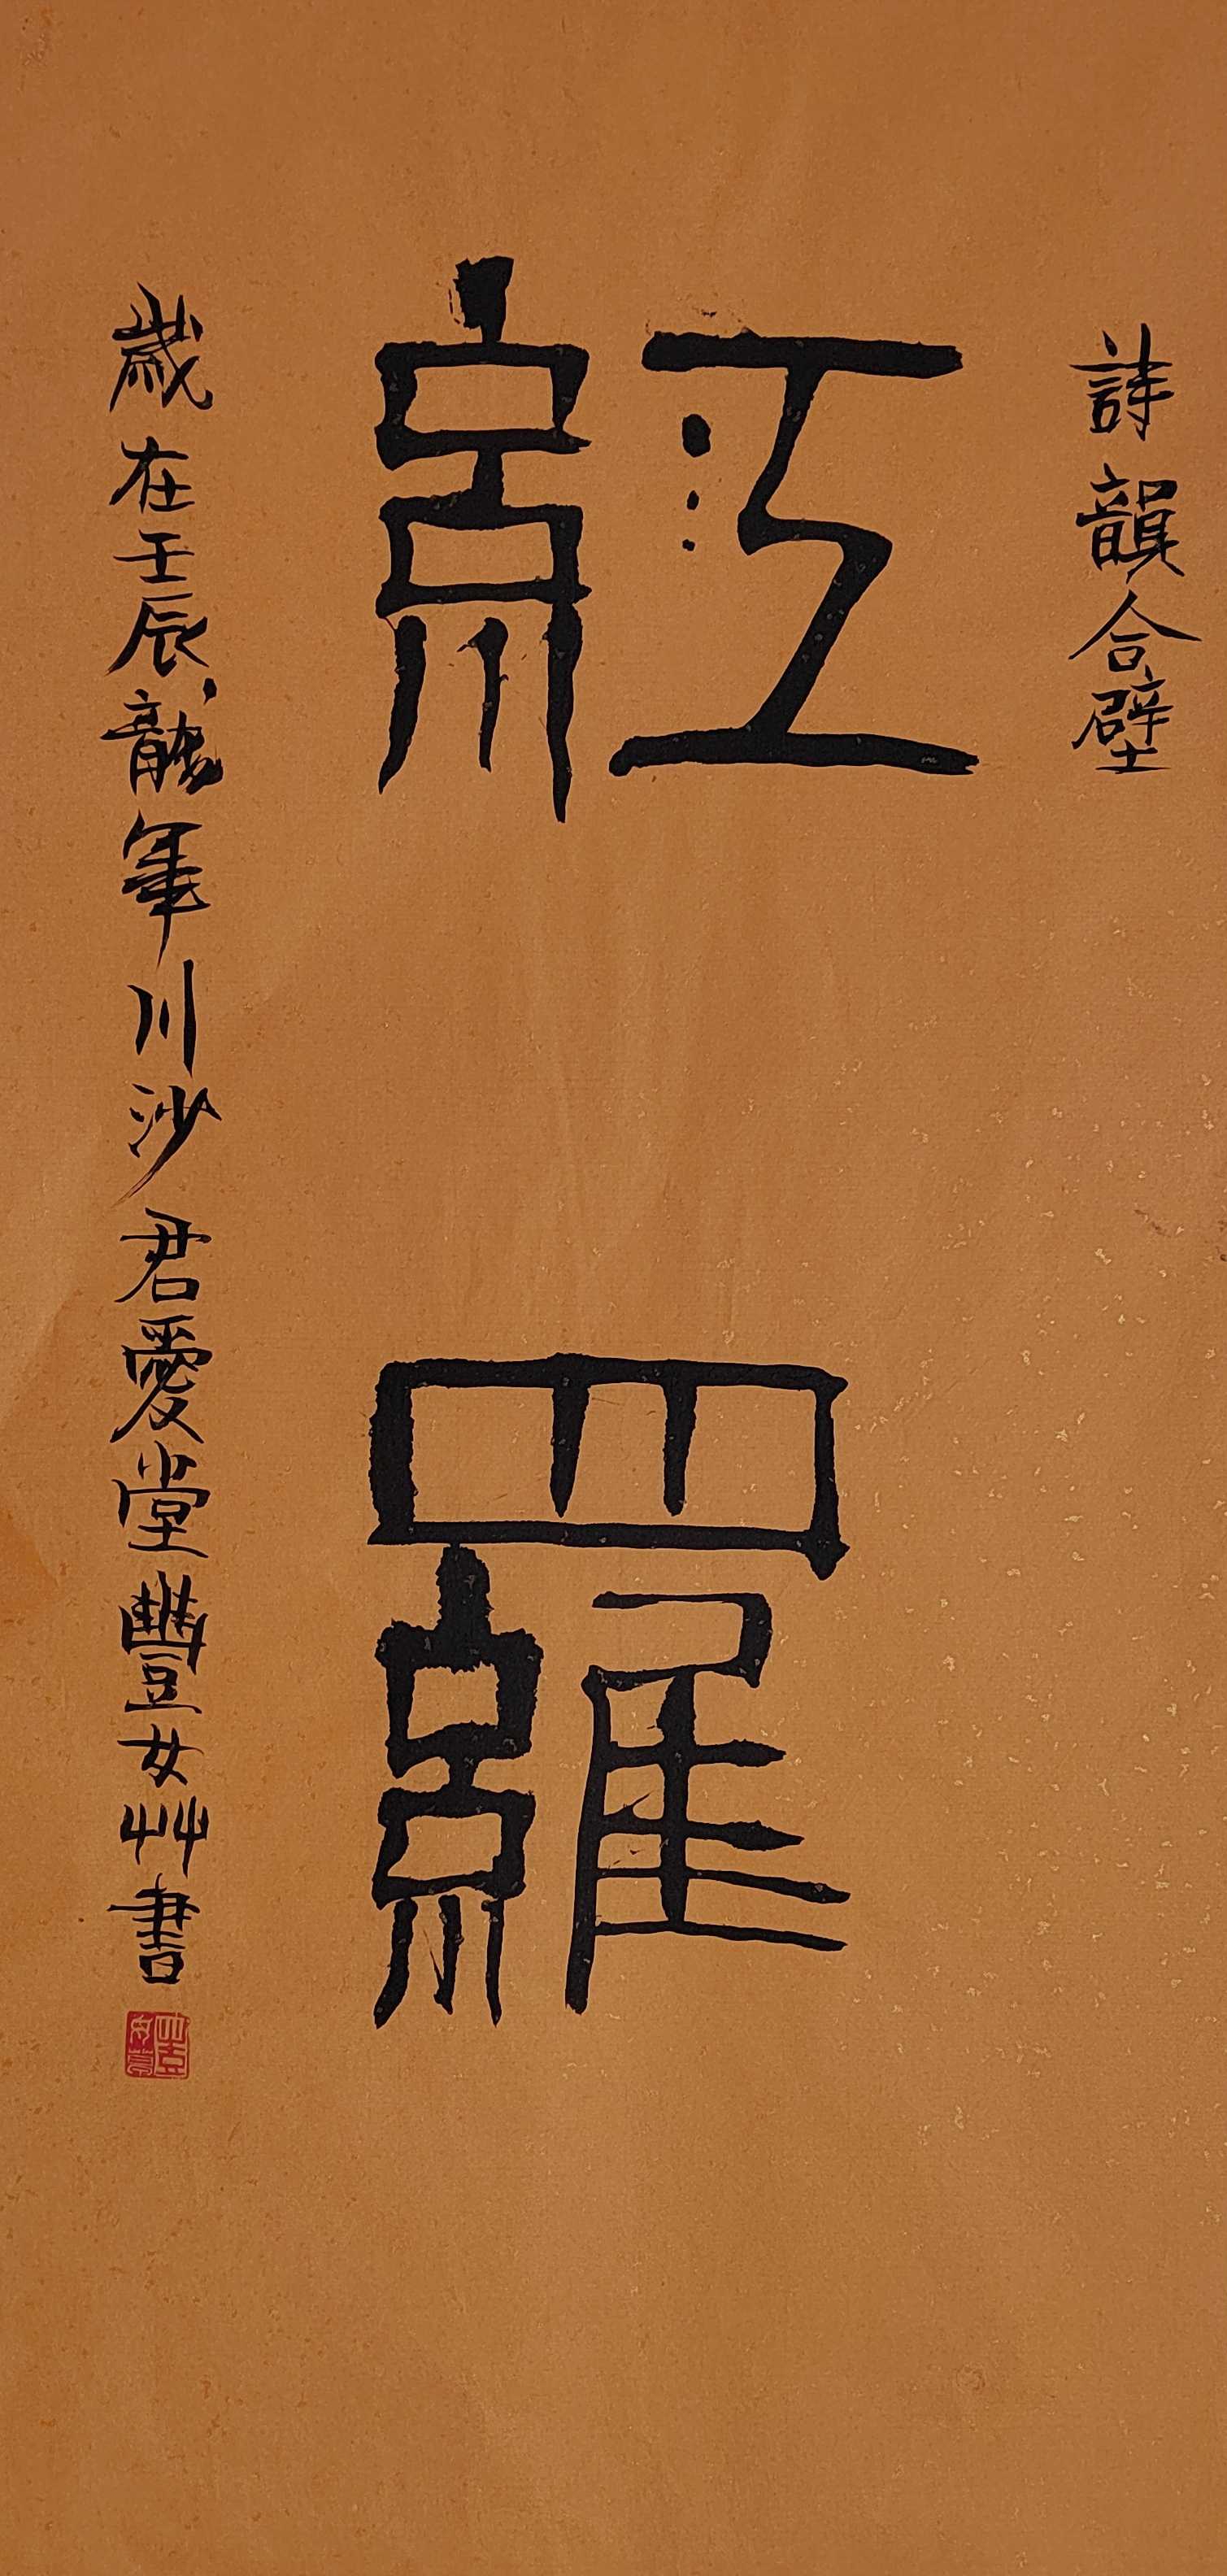 詩韻合壁
紅羅
歲在壬辰龍年川沙君愛堂豐女艸書